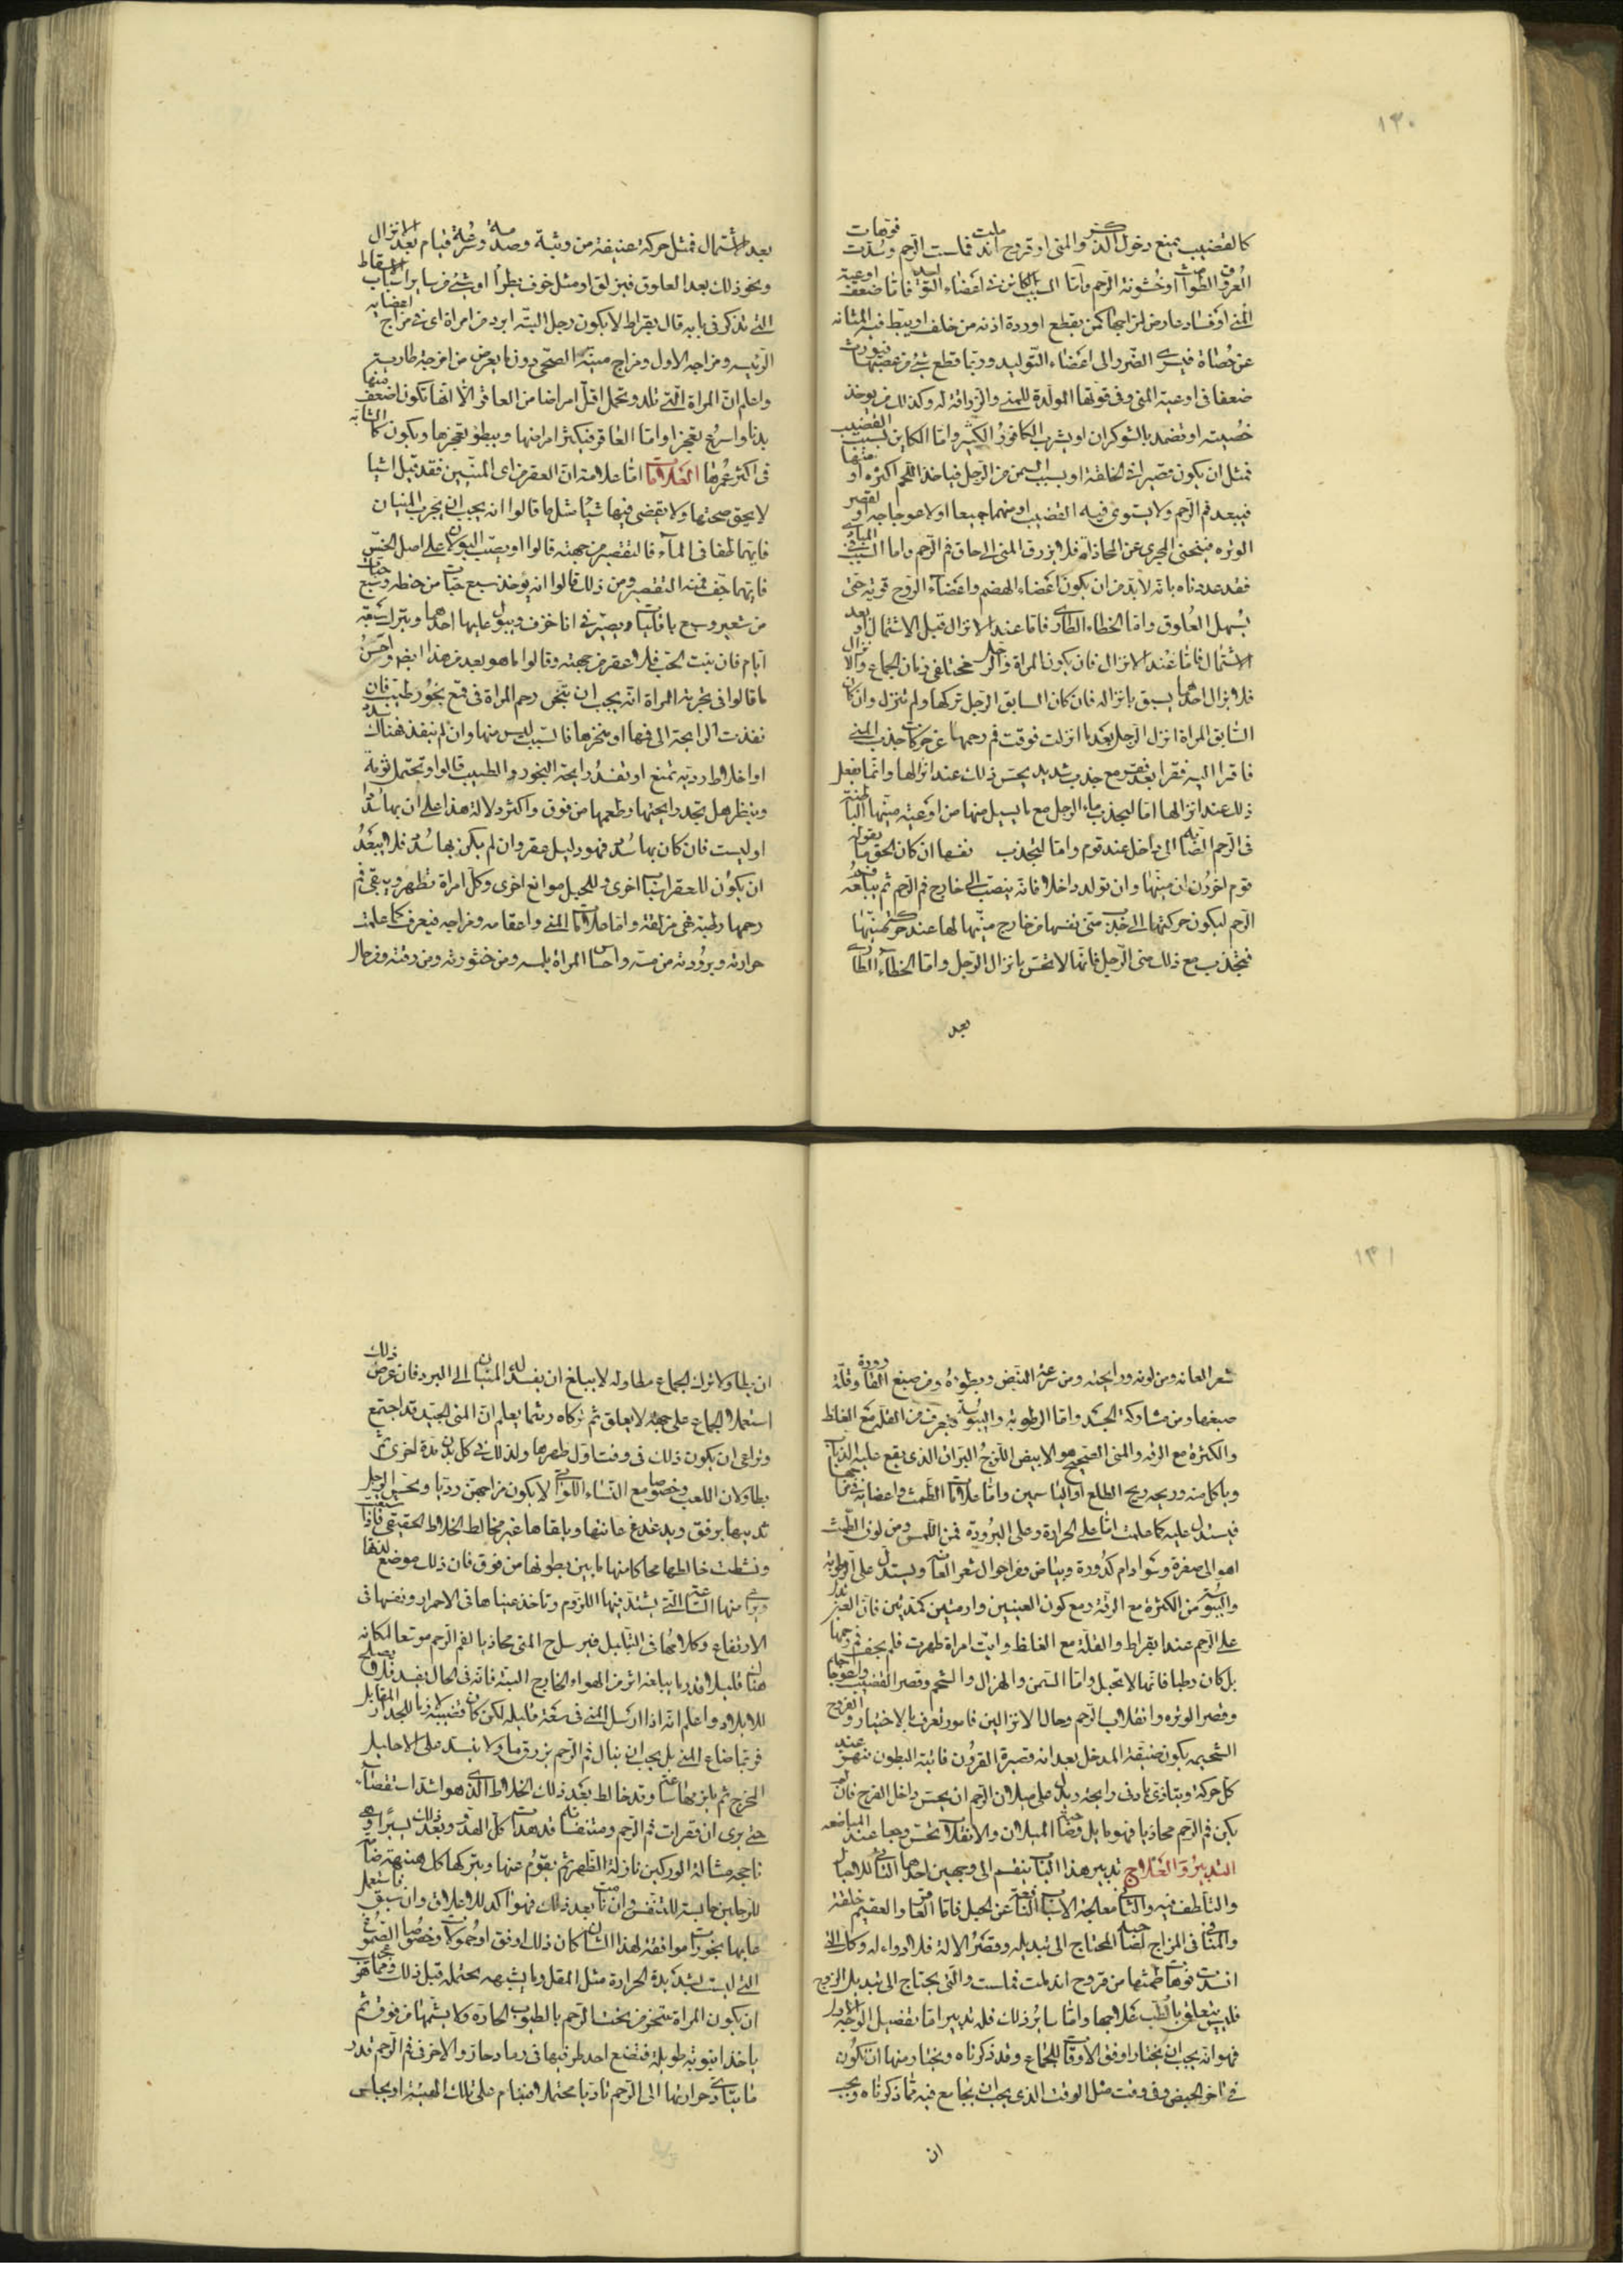 ١٣٠
كالقضيب يمنع دخول الذكر والمنى او قروح اندملت فملست الرحم وسدت فوهات
العروق الطوامث او خشونة الرحم واما السبب الكاين فى اعضاء التوليد فاما ضعف اوعية
المنى او فساد عارض لمزاجها كمن يقطع اوردة اذنه من خلف او يبط فيه المثانه
عن حصاة فيسرى الضرر الى اعضاء التوليد وربما قطع شئ من عصبها فيورث
ضعفا فى اوعية المنى وفى قوتها المولدة للمنى والزراقة له وكذلك من يوخذ
خصيته او تضمد بالشوكران او يشرب الكافور الكثير واما الكاين بسبب القضيب
فمثل ان يكون قصيرا فى الخلقة او بسبب السمن من الرجل فياخذ اللحم اكثره او منهما
فيبعد فم الرحم ولا يستوى فيه القضيب او منهما جميعا او لاعوجاجه او لقصر
الوتره فينحنى المجرى عن المحاذاة فلا يزرق المنى الى حاق فم الرحم واما السبب فى المبادى
فقد عددناه بانه لا بد من ان يكون اعضاء الهضم واعضاء الروح قوية حتى
يسهل العلوق واما الخطاء الطارى فاما عند الانزال قبل الاشتمال او بعد
الاشتمال فاما عند الانزال فان يكون المراة والرجل مختلفى زمان الجماع والانزال
فلا يزال احدهما يسبق بانزاله فان كان السابق الرجل تركها ولم تنزل وان كان
السابق المراة انزل الرجل بعد ما انزلت فوقف فم رحمها عن حركات جذب المنى
فاقرا اليه فقرا بعد فقر مع جذب شديد يحس ذلك عند انزالها وانما يفعل
ذلك عند انزالها اما ليجذب ماء الرجل مع ما يسيل منها من اوعية منيها الباطنة
فى الرحم الصابة الى داخل عند قوم واما لتجذب نفسها ان كان الحق ما يقوله
قوم اخرون ان منيها وان تولد داخلا فانه ينصب الى خارج فم الرحم ثم يبلعه فم
الرحم ليكون حركتها الى جذب منى نفسها من خارج منبها لها عند حركة منيها
فيجذب مع ذلك منى الرجل فانها لا تحس بانزال الرجل واما الخطاء الطارى
بعد
بعد الاشتمال فمثل حركة عنيفة من وثبة وصدمة وسرعة قيام بعد الانزال
ونحو ذلك بعد العلوق فيزلق او مثل خوف يطرأ او شئ من ساير اسباب الاسقاط
التى تذكر فى بابه قال بقراط لا يكون رجل البتة ابرد من امراة اى فى مزاج اعضايه
الرئيسه ومزاجه الاول ومزاج منيه الصحى دون ما يعرض من امزجة طاريه
واعلم ان المراة التى تلد وتحبل اقل امراضا من العاقر الا انها تكون اضعف منها
بدنا واسرع تعجيزا واما العاقر فيكثر امراضها ويبطؤ تعجيزها ويكون كالشابة
فى اكثر عمرها العلامات اما علامة ان العقر من اى المنيين فقد قيل اشيا
لا يحق صحتها ولا يقضى فيها شيا مثل ما قالوا انه يجب ان يجرب المنيان
فايهما طفا فى الماء فالتقصير من جهته قالوا او يصب البولان على اصل الخس
فايهما جف فمنه التقصير ومن ذلك قالوا انه يوخذ سبع حبات من حنطه وسبع حبات
من شعير وسبع باقليات ويصير فى انا خزف ويبول عليها احدهما ويترك سبعة
ايام فان نبت الحب فلا عقر من جهته وقالوا ما هو بعد من هذا ايضا واحسن
ما قالوا فى تجربة المراة انه يجب ان يبخر رحم المراة فى قمع بخور طيب فان
نفذت الرايحة الى فمها او منخرها فالسبب ليس منها وان لم ينفذ فهناك سدد
او اخلاط رديه تمنع او تفسد رايحة البخور والطيب قالوا وتحتمل ثومة
وينظر هل تجد رايحتها وطعمها من فوق واكثر دلالة هذا على ان بها سددا
او ليست فان كان بها سدد فهو دليل عقر وان لم يكن بها سدد فلا يبعد
ان يكون للعقر اسباب اخرى وللحبل موانع اخرى وكل امراة تطهر ويبقى فم
رحمها رطبا فهى مزلقة واما علامات المنى واعضايه ومزاجه فيعرف كما علمت
حرارته وبرودته من مسه واحساس المراة بلمسه ومن خثورته ومن رقته ومن حال
١٣١
شعر العانه ومن لونه ورايحته ومن سرعة النبض وبطؤه ومن صبغ القارورة وقلة
صبغها ومن مشاركة الجسد واما الرطوبة واليبوسة فيعرف من القلة مع الغلظ
والكثرة مع الرقه والمنى الصحيح هو الابيض اللزج البراق الذى يقع عليه الذباب
وياكل منه وريحه ريح الطلع او الياسمين واما علامات الطمث واعضايه فى مزاجها
فيستدل عليه كما علمت اما على الحرارة وعلى البرودة فمن اللمس ومن لون الطمث
اهو الى صفرة وسواد ام كدورة وبياض ومن احوال شعر العانة ويستدل على الرطوبة
واليبوسة من الكثرة مع الرقة ومع كون العينين وارمتين كمدتين فان العين تدل
على الرحم عند بقراط والقلة مع الغلظ وايت امراة طهرت فلم يجف فم رحمها
بل كان رطبا فانها لا تحبل واما السمن والهزال والشحم وقصر القضيب واعوجاجه
وقصر الوتره وانقلاب الرحم وحال الانزالين فامور تعرف بالاختبار والفروج
الشحيمه يكون ضيقة المدخل بعيدته قصيرة القرون ناتية البطون تنهز عند
كل حركة ويتاذى بادنى رايحة ويدل على ميلان الرحم ان يحس داخل الفرج فان لم
يكن فم الرحم محاذيا فهو مايل وصاحبة الميلان والانقلاب تحس وجعا عند المباضعه
التدبير والعلاج تدبير هذا الباب ينقسم الى وجهين احدهما التانى للاحبال
والتلطف فيه والثانى معالجة الاسباب المانعة عن الحبل فاما العاقر والعقيم خلقة
والمنافى المزاج لصاحبه المحتاج الى تبديله وقصر الالة فلا دواء له وكذلك التى
انسدت فوهات طمثها من قروح اندملت فملست والتى يحتاج الى تبديل الزوج
فليس يتعلق بالطب علاجها واما ساير ذلك فله تدبير اما تفصيل الوجه الاول
فهو انه يجب ان يختار اوفق الاوقات للجماع وقد ذكرناه ويختار منها ان تكون
فى اخر الحيض وفى وقت مثل الوقت الذى يجب ان يجامع فيه مما ذكرناه ويجب
ان
ان يطاولا ترك الجماع مطاولة لا يبلغ ان يفسد له المنيان الى البرد فان عرض ذلك
استعملا الجماع على جهة لا يعلق ثم تركاه ريثما يعلم ان المنى الجيد قد اجتمع
ويراعى ان يكون ذلك فى وقت اول طهرها ولذلك فى كل بدن مدة اخرى ثم
يطاولان اللعب وخصوصا مع النساء اللواتى لا يكون مزاجهن رديا ويمس الرجل
ثدييها برفق ويدغدغ عانتها ويلقاها غير مخالط الخلاط الحقيقى فاذا شبقت
ونشطت خالطها محاكا منها ما بين بظرها من فوق فان ذلك موضع لذتها
ويراعى منها الساعة التى يشتد فيها اللزوم وتاخذ عيناها فى الاحمرار ونفسها فى
الارتفاع وكلامها فى التبلبل فيرسل المنى محاذيا لفم الرحم موسعا لمكانه
هناك قليلا قدر ما يبلغه اثر من الهواء الخارج البتة فانه فى الحال يفسد فلا يصلح
للايلاد واعلم انه اذا ارسل المنى فى سعة قليله لكن كان قضيبه بالجدار المقابل
فربما ضاع المنى بل يجب ان ينال فم الرحم بزرق ما ولا ينسد على الاحليل
المخرج ثم يلزمها ساعة وقد خالط بعد ذلك الخلاط الذى هو اشد استقصاء
حتى يرى ان فقرات فم الرحم ومتنفسها قد هدات كل الهدء وبعد ذلك يسيرا وهى
فاجحه شالة الوركين نازلة الظهر ثم يقوم عنها ويتركها كل هنيهة ضامة
للرجلين حابسة للنفس وان نامت بعد ذلك فهو اكد للاعلاق وان سبق فاستعمل
عليها بخورات موافقة لهذا الشان كان ذلك اوفق او حمولات وخصوصا الصموغ
التى ليست بشديدة الحرارة مثل المقل وما يشبهه يحتمله قبل ذلك ومما هو عجيب
ان يكون المراة تتبخر من تحت الرحم بالطيوب الحارة ولا يشمها من فوق ثم
ياخذ انبوبة طويلة فتضع احد طرفيها فى رماد حار والاخر فى فم الرحم قدر
ما يتادى حرارتها الى الرحم تاديا محتملا فينام على تلك الهيئة او يجلس